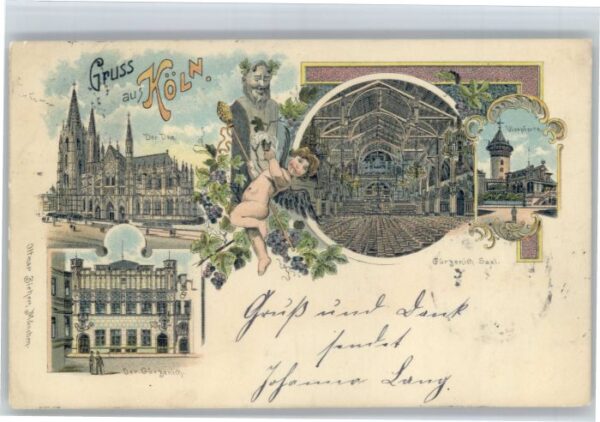 Gruss
aus KÖLN.
Der Dom
Gürzenich Saal.
Der Gürzenich.
Gruß und Dank
sendet
Johanna Lang.